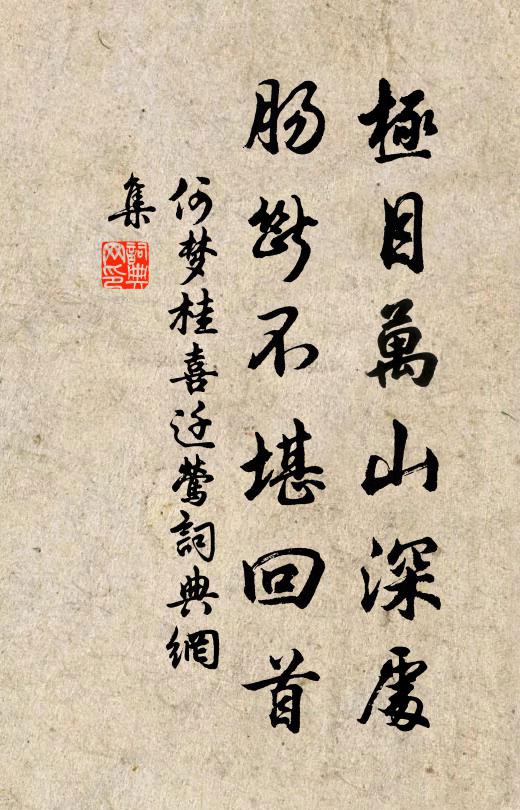 極目萬山深處
肠斷不堪回首
何梦桂喜迁鶯詞典網
集
詞典
网印